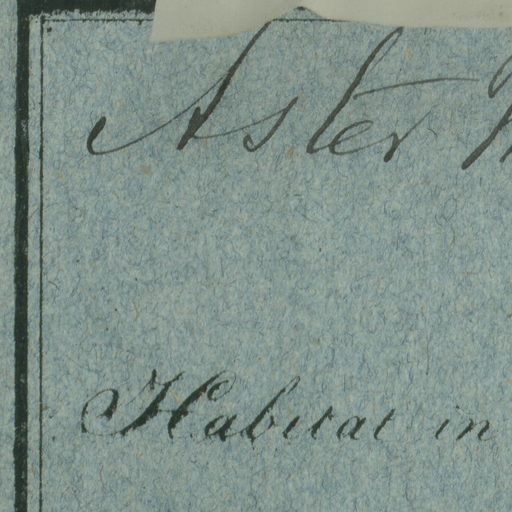 Aster
Habitat in